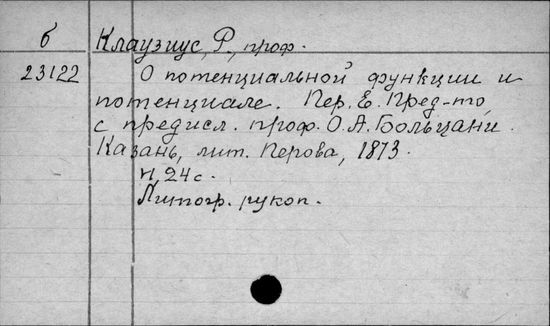 б Клаузиус, Р., проф.
23122 О потенциальной функции и
потенциале. Пер. Е. Пред-то,
с предисл. проф. О.А. Больцани.
Казань, лит. Перова, 1873.
24 с.
Литогр. рукоп.